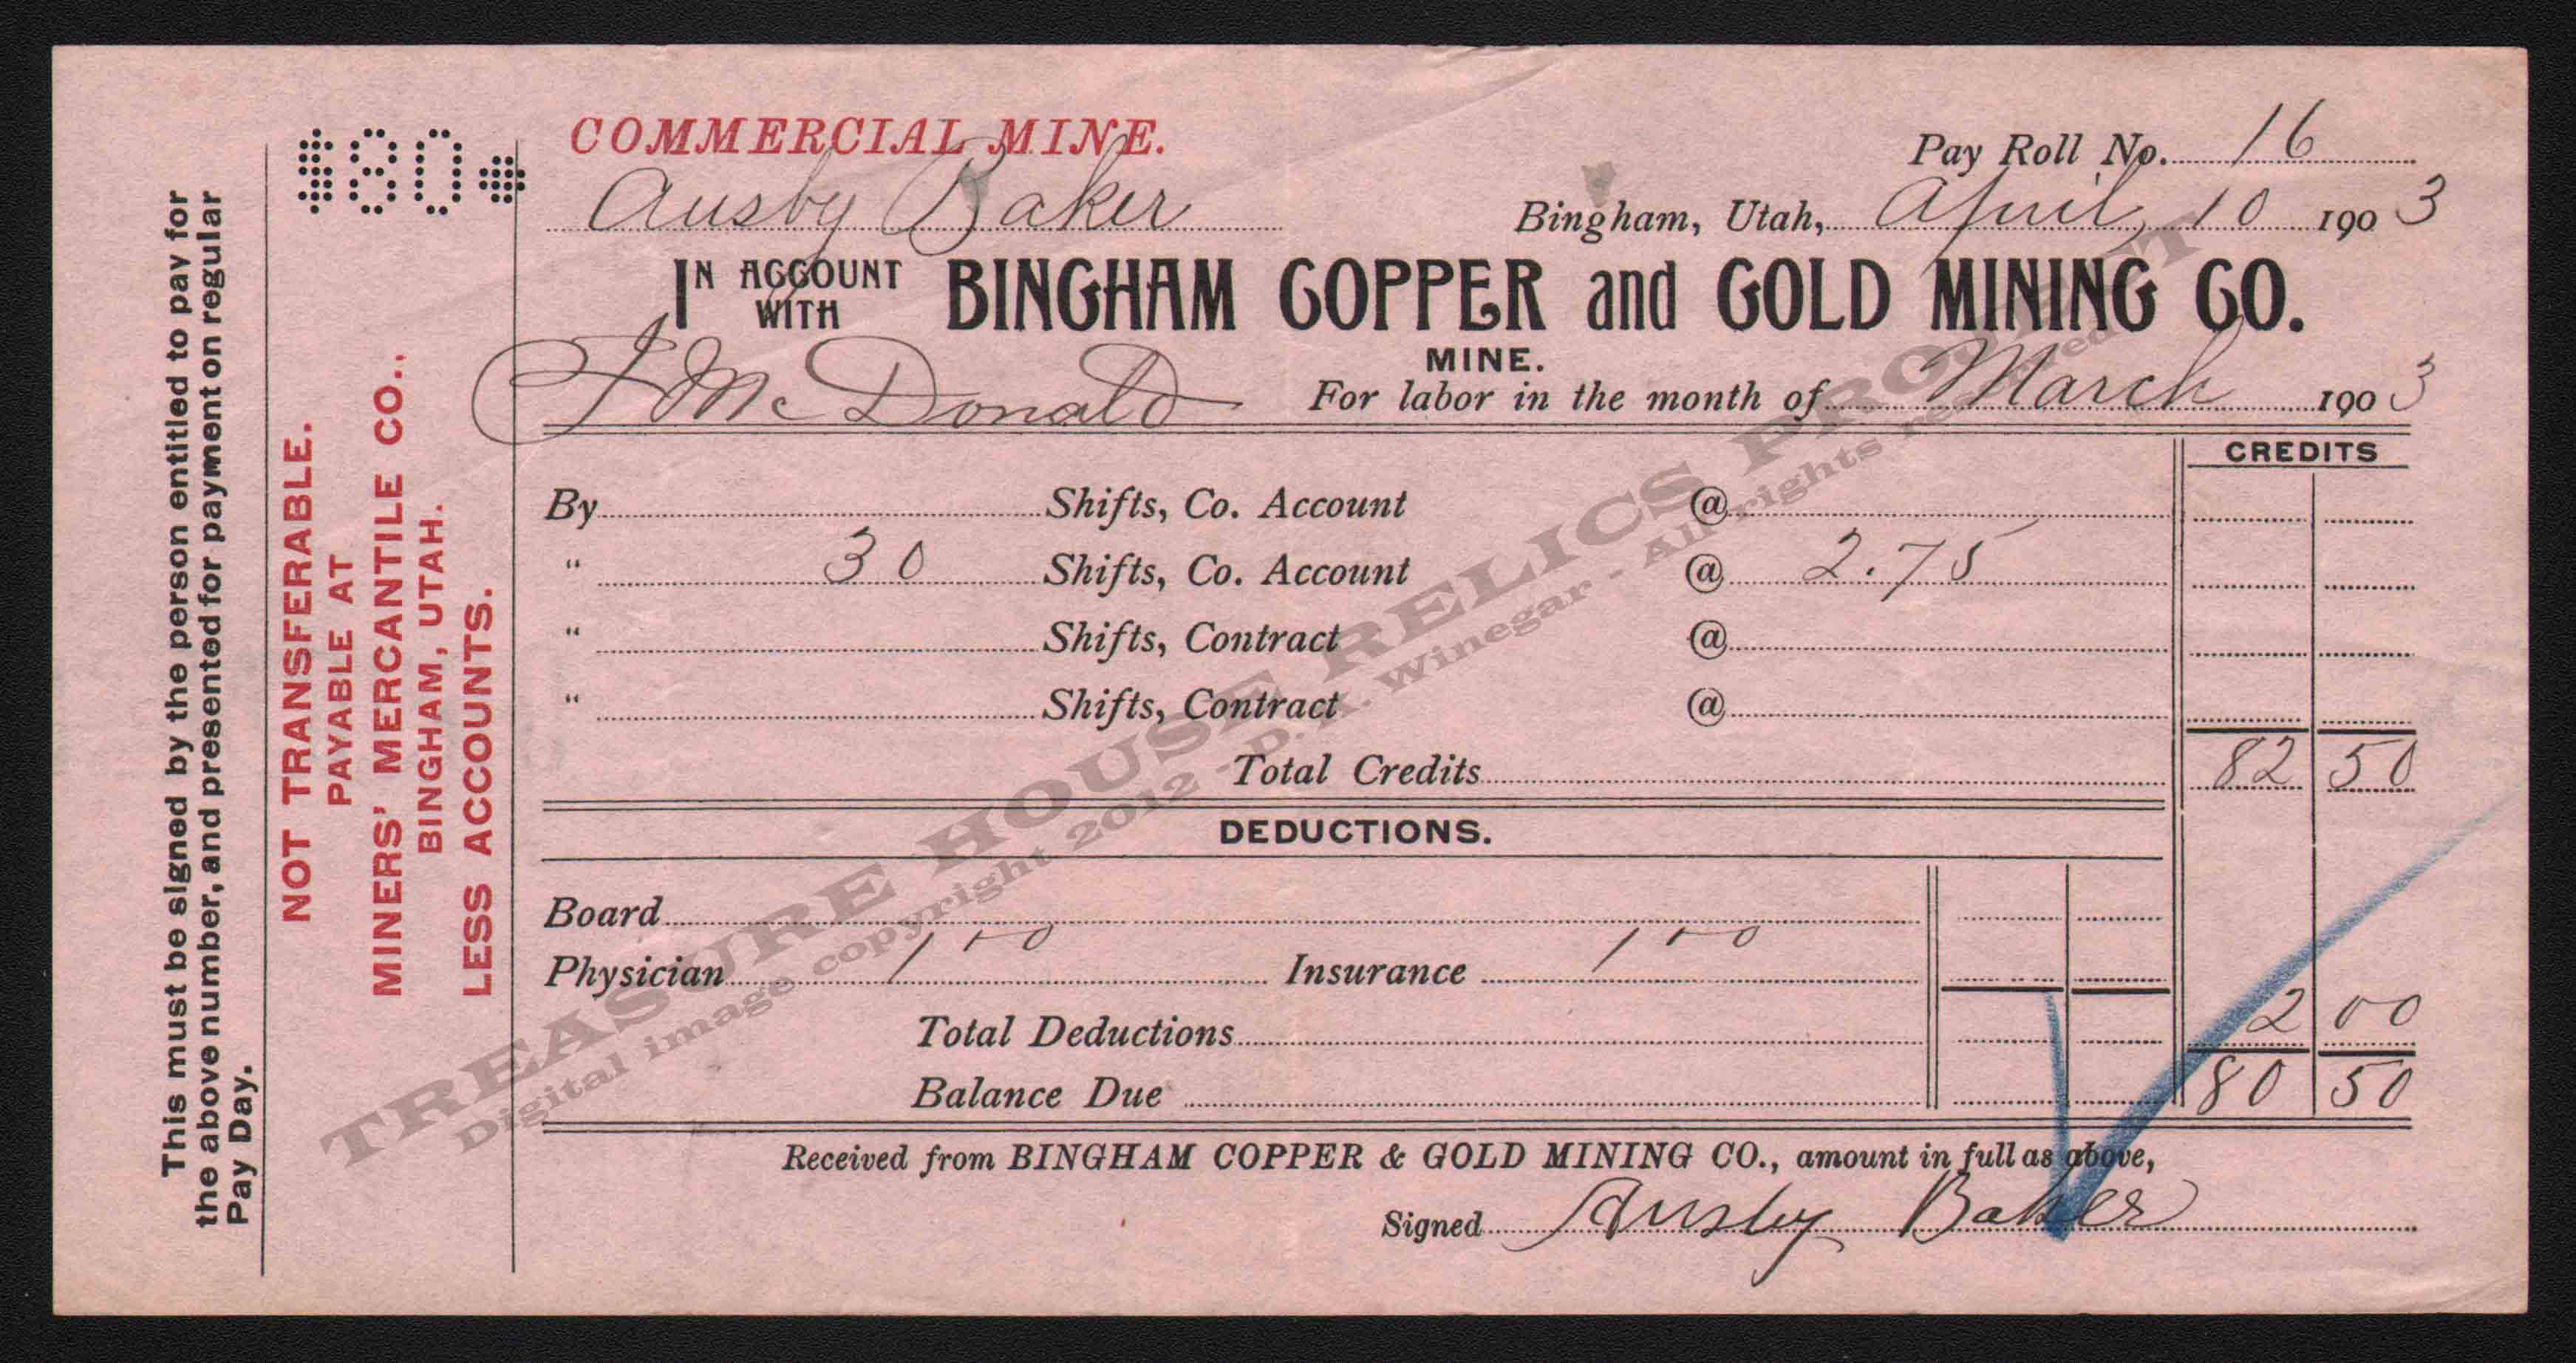 This must be signed by the person entitled to pay for
the above number, and presented for payment on regular
Pay Day.
NOT TRANSFERABLE.
PAYABLE AT
MINERS' MERCANTILE CO.,
BINGHAM, UTAH.
LESS ACCOUNTS.
$80
COMMERCIAL MINE.
Pay Roll No. 16
Ausby Baker
Bingham, Utah, April 10 1903
IN ACCOUNT WITH BINGHAM COPPER and GOLD MINING CO.
MINE.
J McDonald
For labor in the month of March 1903
CREDITS
By Shifts, Co. Account @
" 30 Shifts, Co. Account @ 2.75
" Shifts, Contract @
" Shifts, Contract @
Total Credits 82 50
DEDUCTIONS.
Board
Physician 1 00 Insurance 1 00
Total Deductions 2 00
Balance Due 80 50
Received from BINGHAM COPPER & GOLD MINING CO., amount in full as above,
Signed Ausby Baker
TREASURE HOUSE RELICS PROJECT
Digital image copyright 2012 - D.K. Winegar - All rights reserved